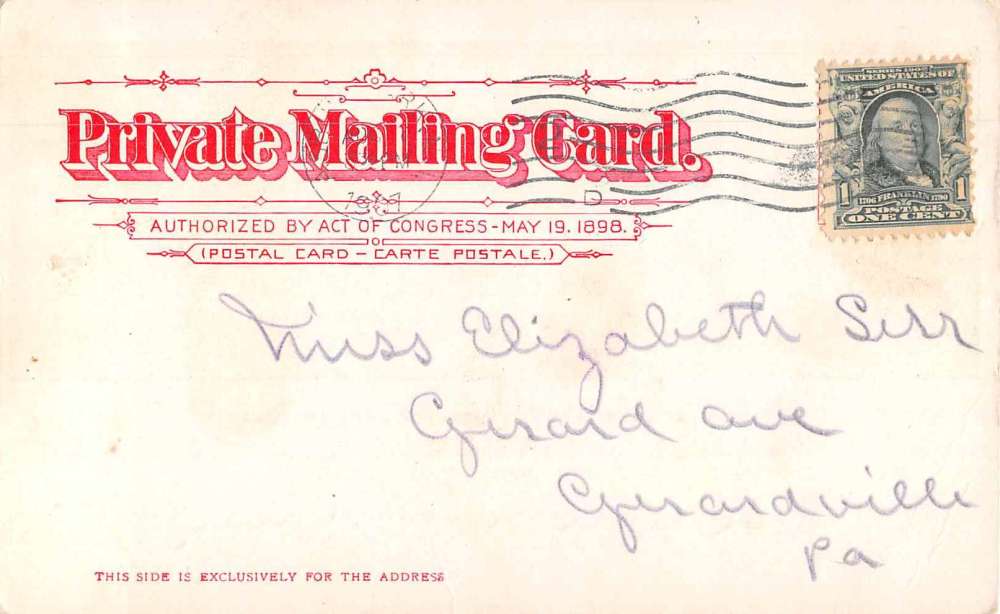 Private Mailing Card.
AUTHORIZED BY ACT OF CONGRESS-MAY 19. 1898.
(POSTAL CARD - CARTE POSTALE.)
SERIES 1902
UNITED STATES OF
AMERICA
1706 FRANKLIN 1790
1 POSTAGE 1
ONE CENT
D
Miss Elizabeth Serr
Gerard Ave
Gerardville
Pa
THIS SIDE IS EXCLUSIVELY FOR THE ADDRESS